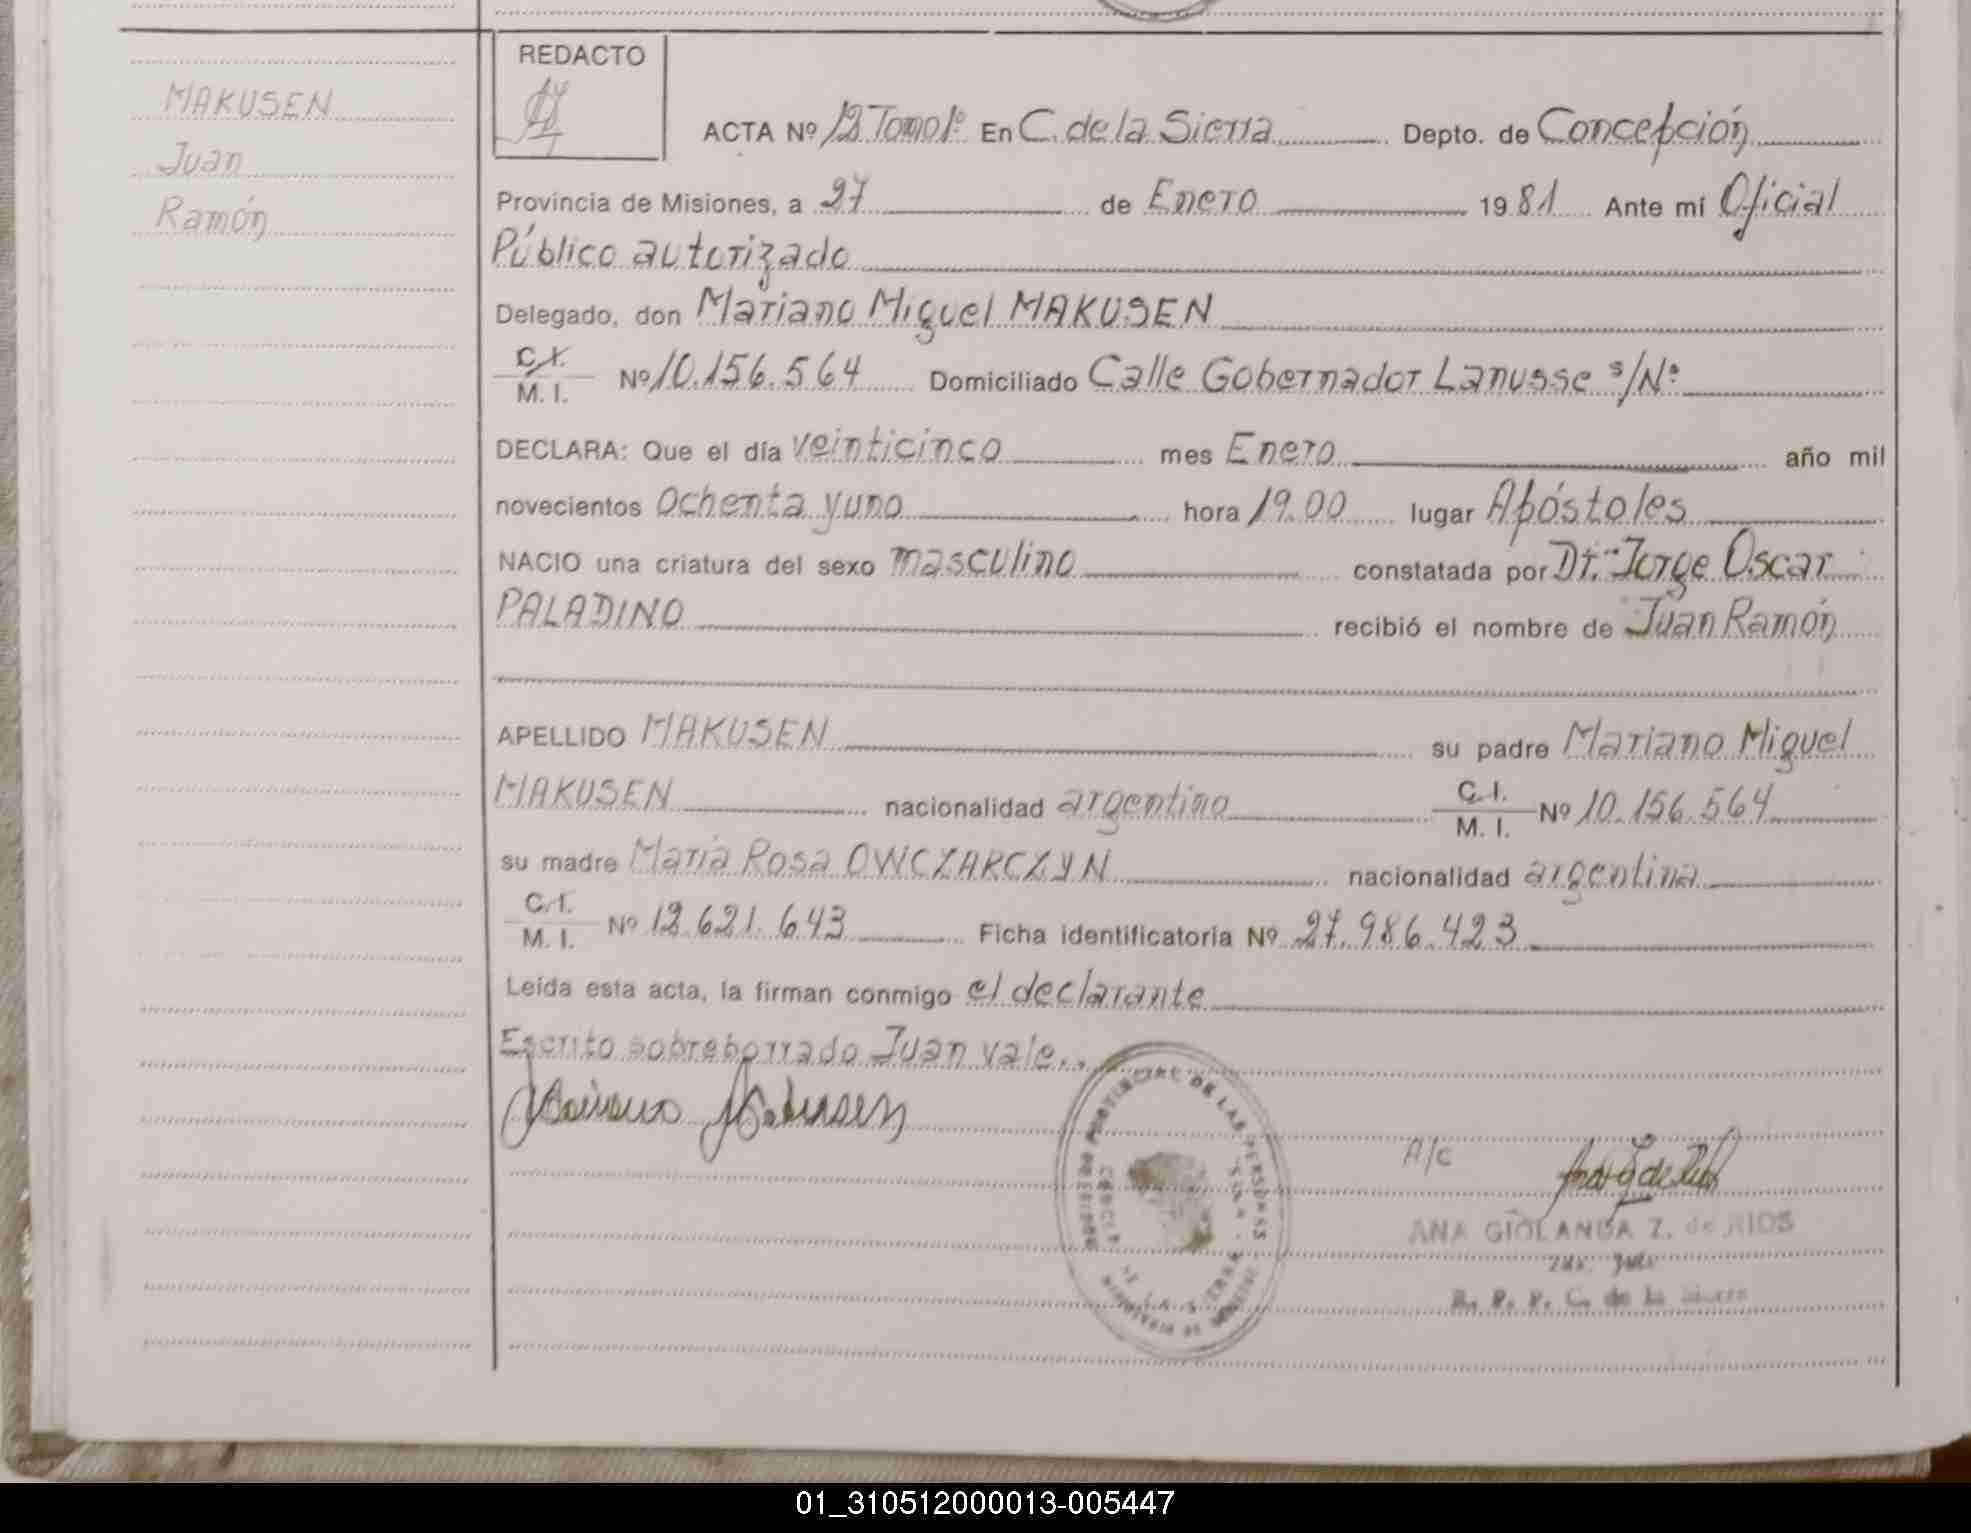 MAKUSEN
Juan
Ramón
REDACTO
ACTA Nº 12 Tomo 1º En C. de la Sierra Depto. de Concepción
Provincia de Misiones, a 27 de Enero 1981 Ante mí Oficial
Público autorizado
Delegado, don Mariano Miguel MAKUSEN
C.I.
M. I. Nº 10.156.564 Domiciliado Calle Gobernador Lanusse s/Nº
DECLARA: Que el día veinticinco mes Enero año mil
novecientos ochenta y uno hora 19.00 lugar Apóstoles
NACIO una criatura del sexo masculino constatada por Dr. Jorge Oscar
PALADINO recibió el nombre de Juan Ramón
APELLIDO MAKUSEN su padre Mariano Miguel
MAKUSEN nacionalidad argentino C.I. M. I. Nº 10.156.564
su madre María Rosa OWCZARCZYN nacionalidad argentina
C.I.
M. I. Nº 12.621.643 Ficha identificatoria Nº 27.986.423
Leída esta acta, la firman conmigo el declarante
Escrito sobreborrado Juan vale..
A/C
ANA GIOLANDA Z. de RIOS
R. P. P. C. de la Sierra
01_310512000013-005447